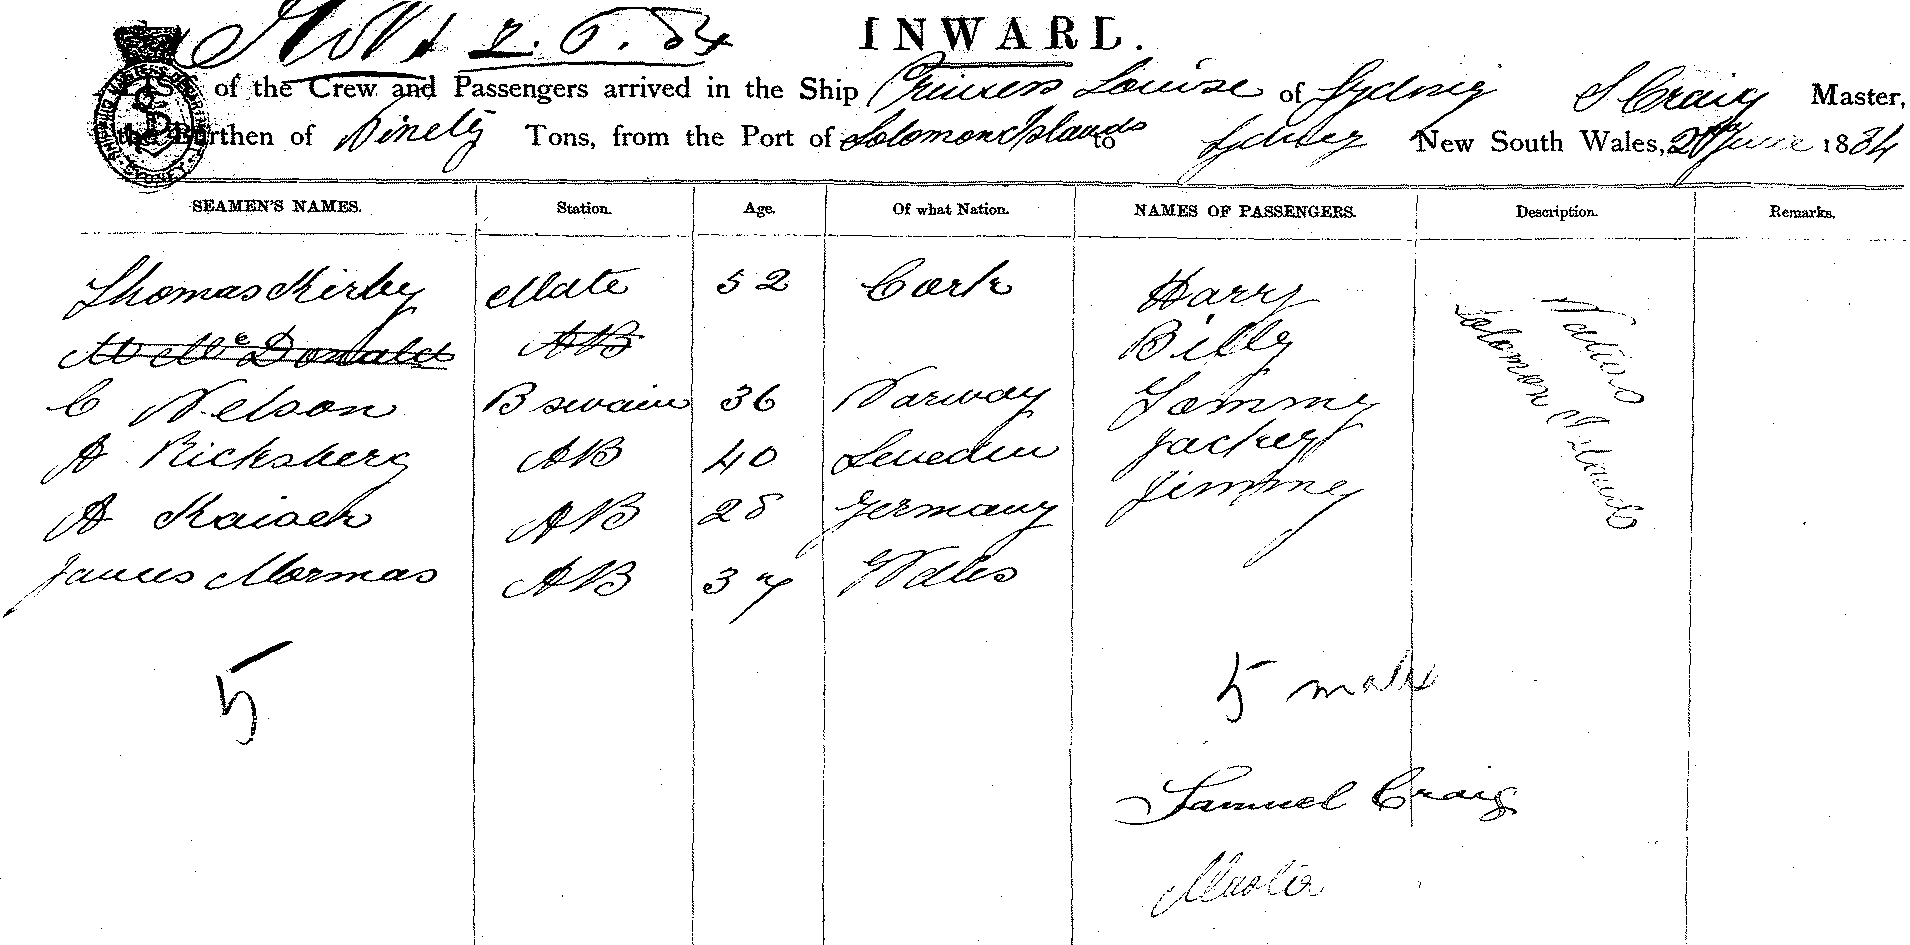 2. 6. 84
INWARD.
LIST of the Crew and Passengers arrived in the Ship Princess Louise of Sydney S Craig Master,
the Burthen of Ninety Tons, from the Port of Solomon Islands to Sydney New South Wales, 2nd June 1884
SEAMEN'S NAMES. Station. Age. Of what Nation. NAMES OF PASSENGERS. Description. Remarks.
Thomas Kirby Mate 52 Cork Harry
M McDonald AB Billy
C Nelson B swain 36 Norway Tommy
A Ricksberg AB 40 Sweden Jackey
A Kaiser AB 28 Germany Jimmy
James Mormas AB 37 Wales
Natives
Solomon Islands
5
5 male
Samuel Craig
Master